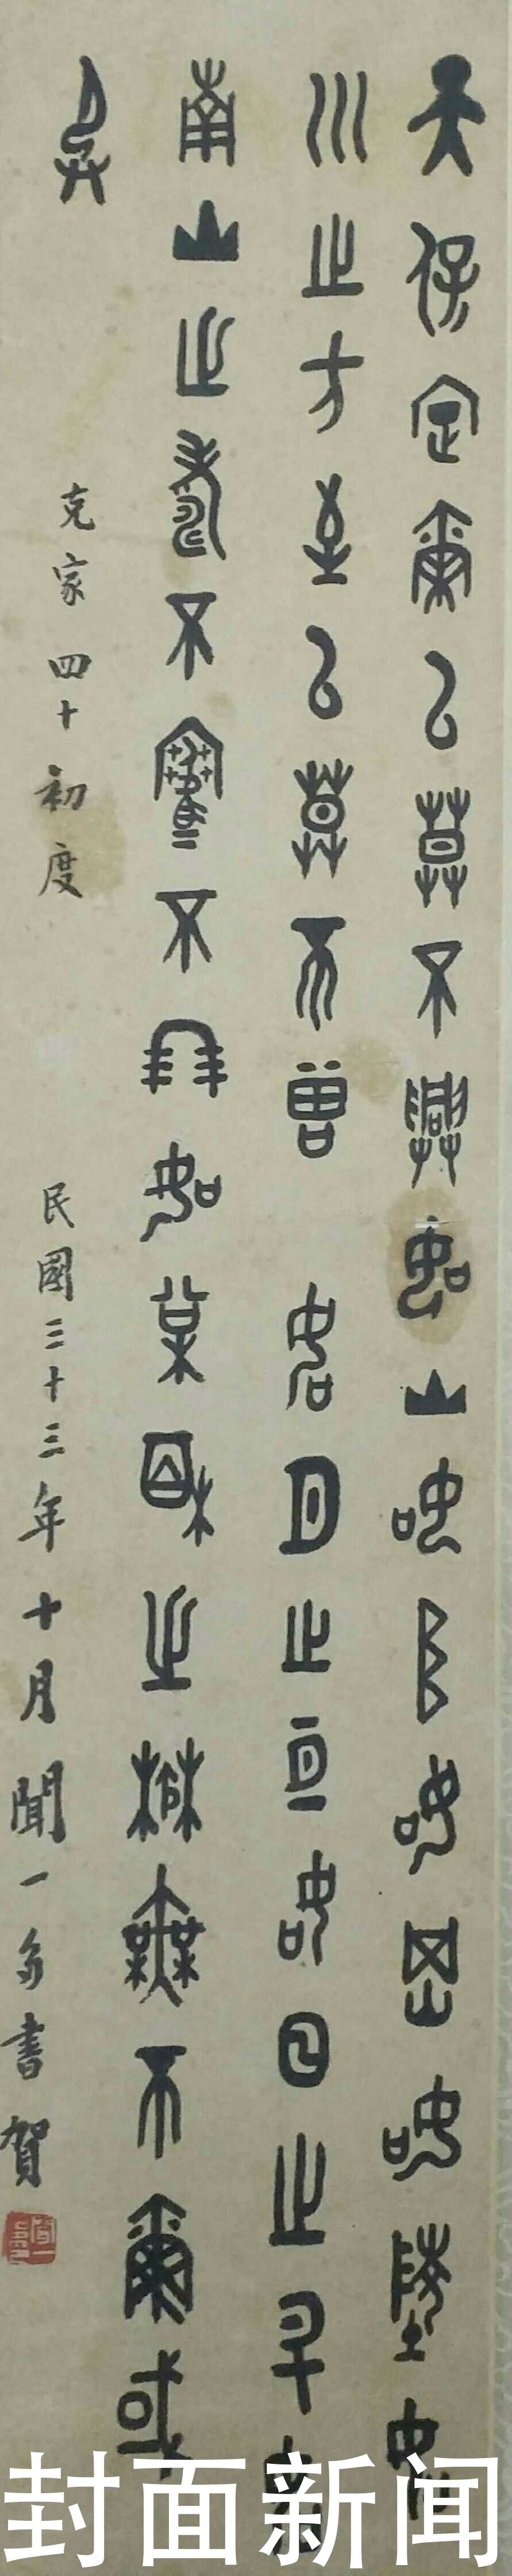 天保定爾以莫不興如山如阜如岡如陵如
川之方至以莫不增如月之恆如日之升如
南山之壽不騫不崩如松柏之茂無不爾或
承
克家四十初度 民國三十三年十月聞一多書賀
封面新闻